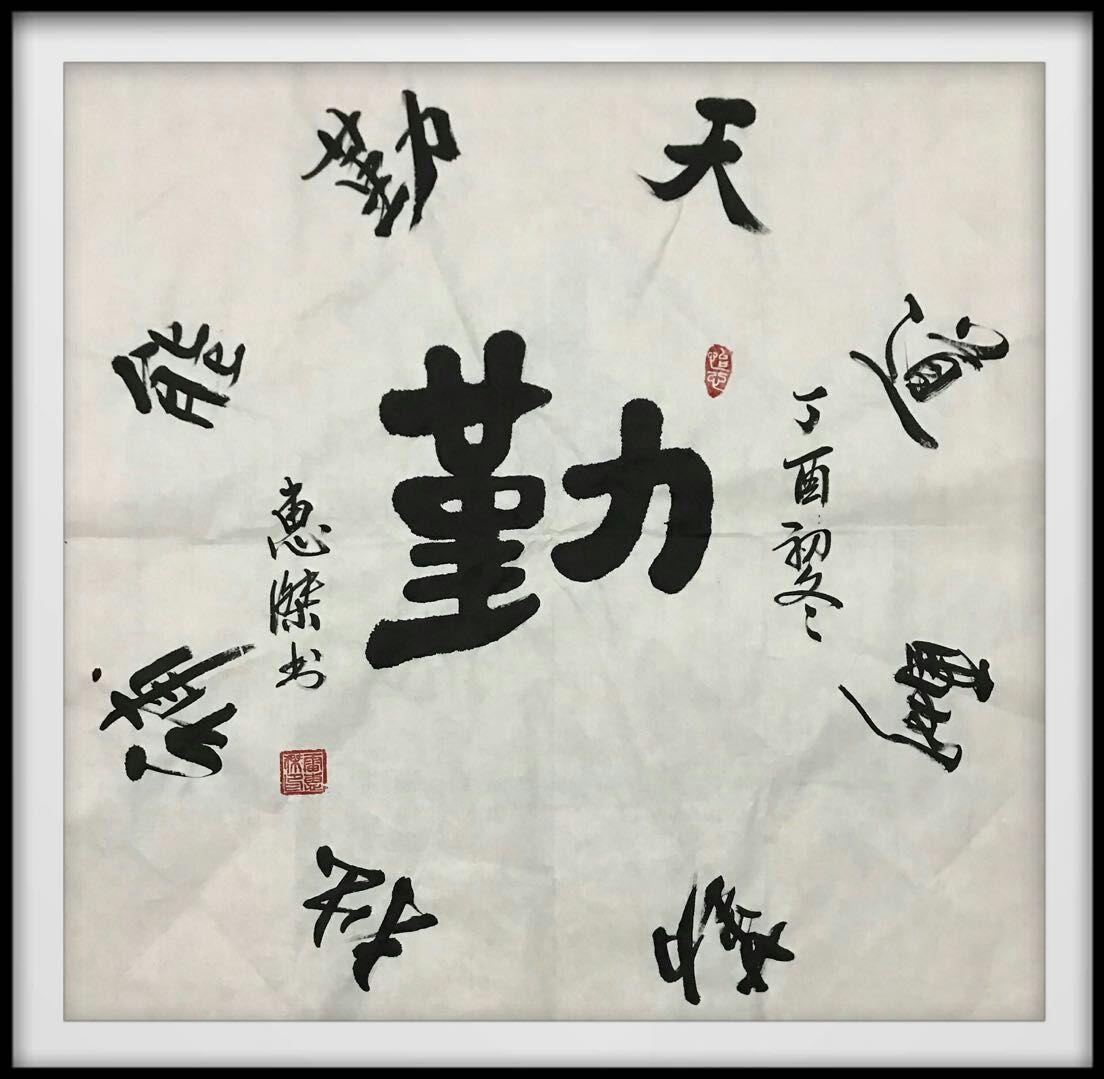 勤
天道酬勤
勤能補拙
丁酉初冬
惠傑书